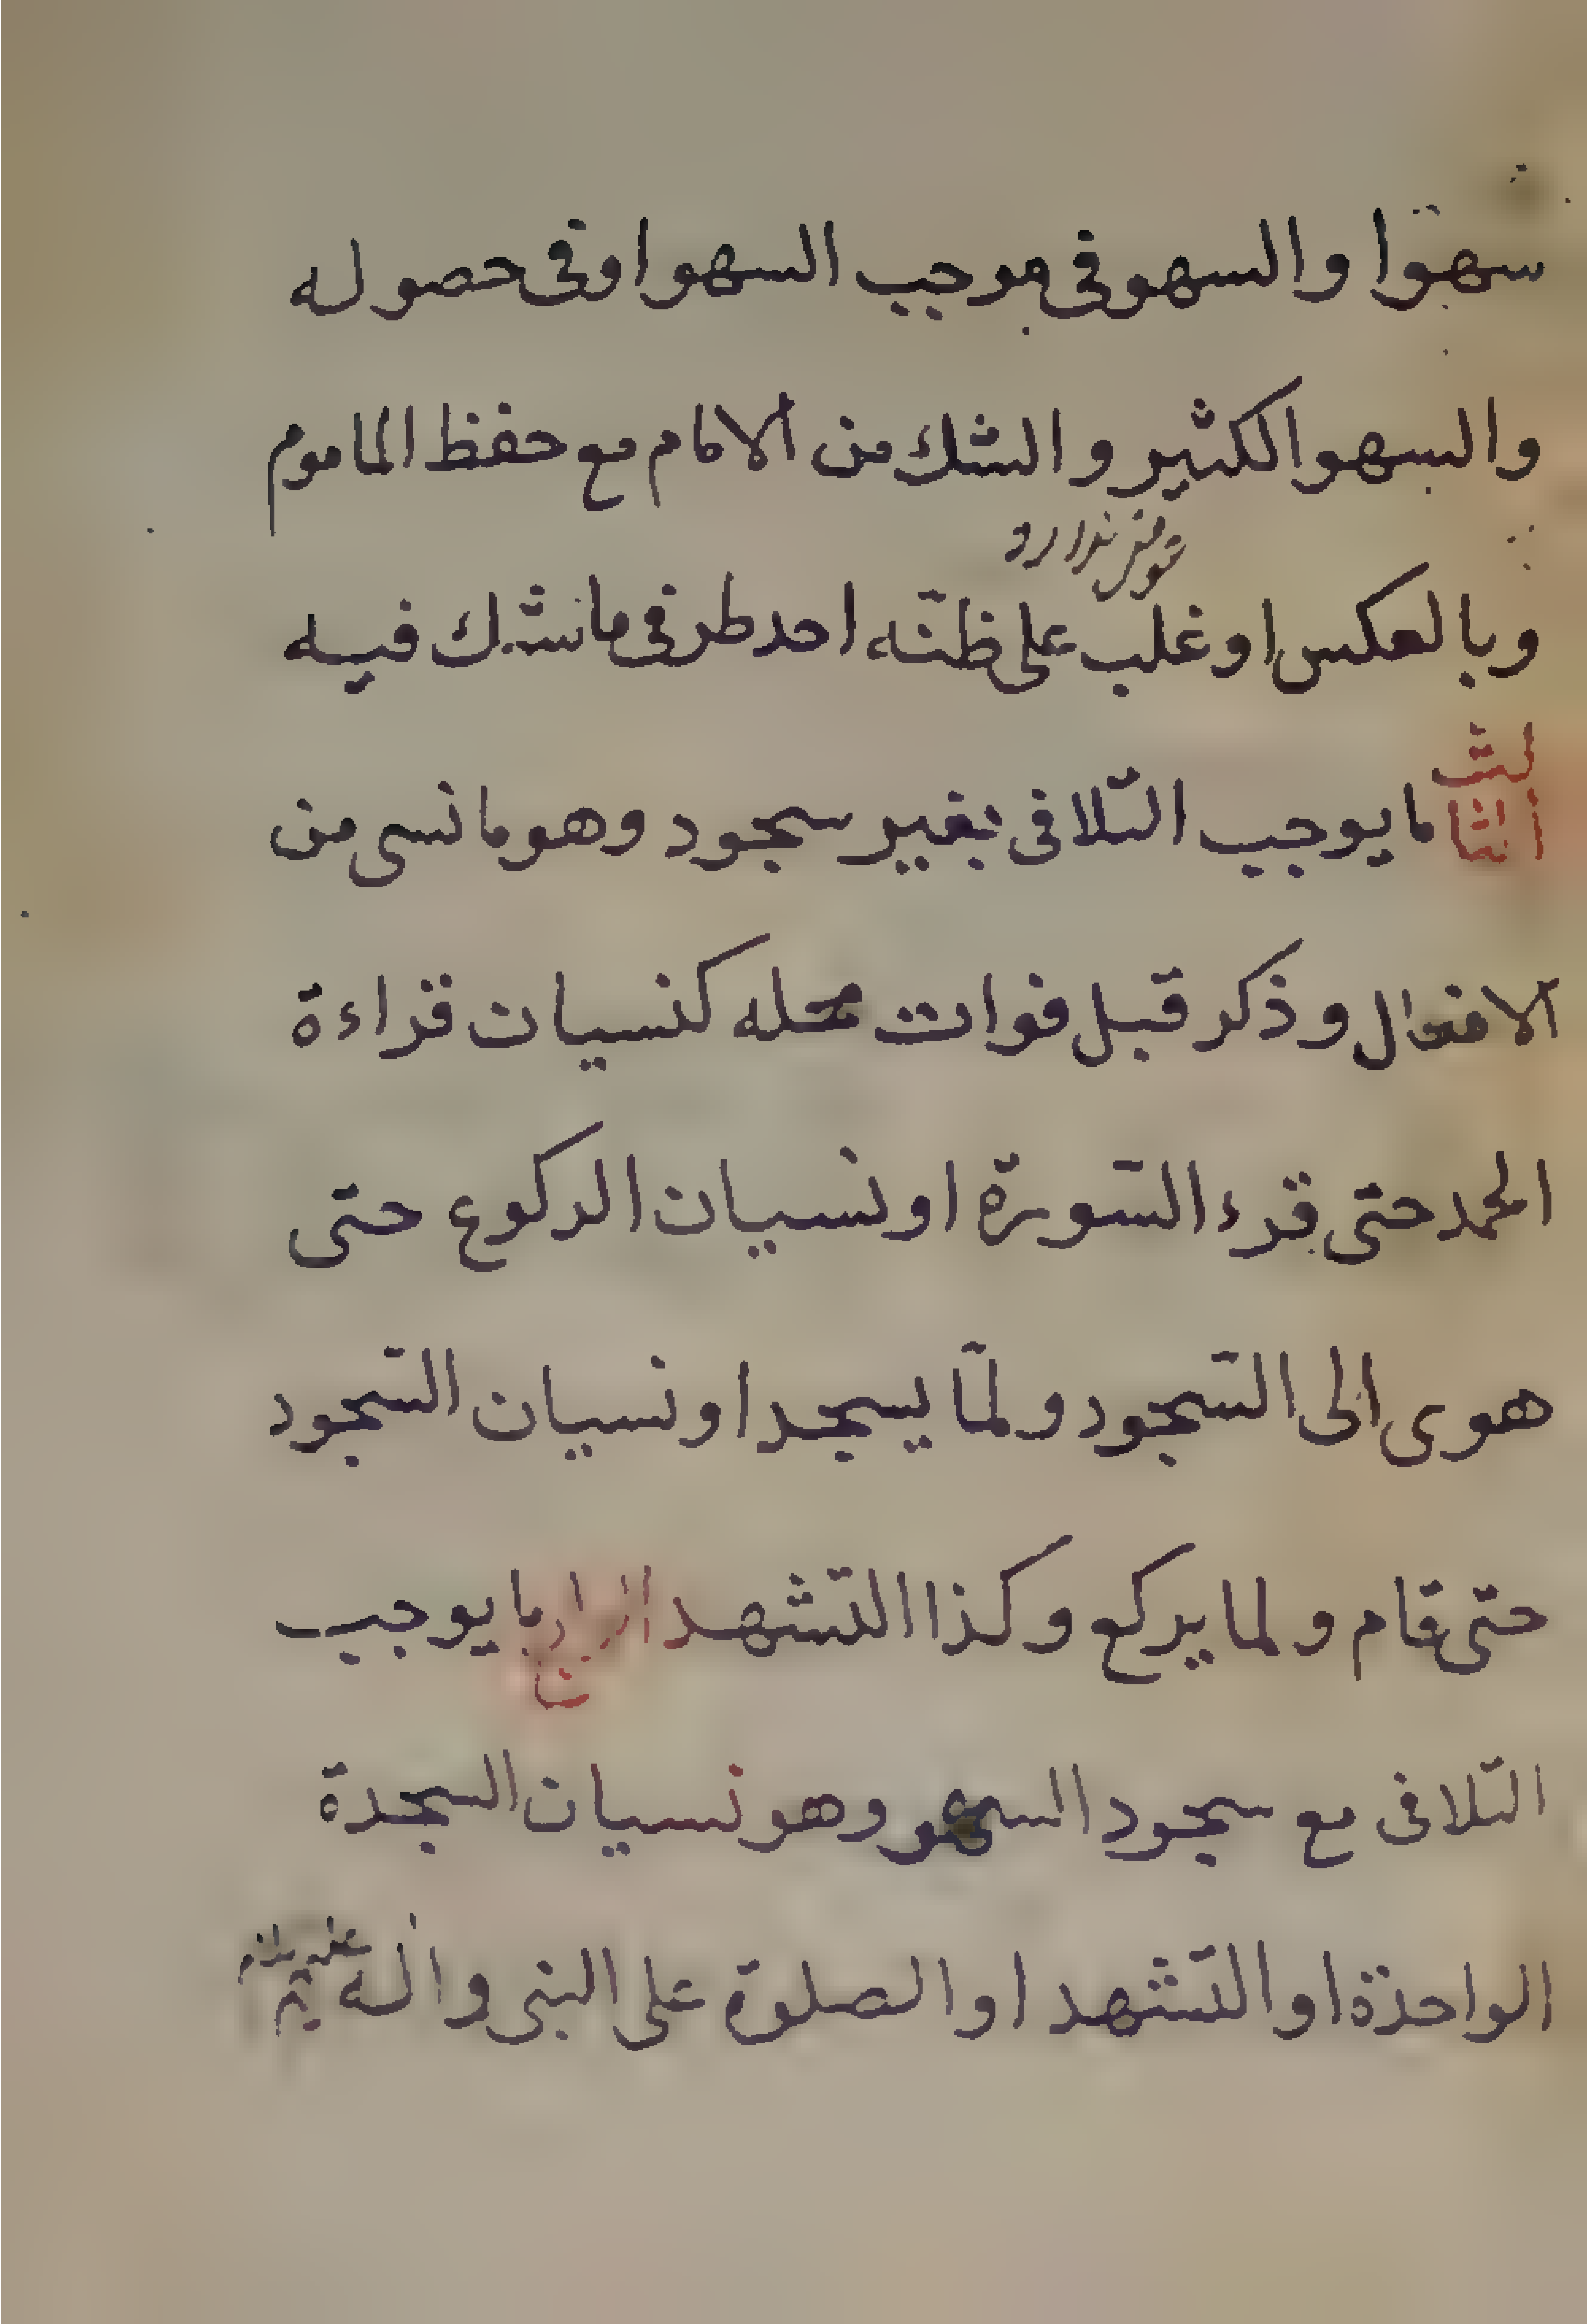 سهوا والسهو فى موجب السهو او فى حصوله
والسهو الكثير والشك من الامام مع حفظ الماموم
وبالعكس او غلب على ظنّه احد طرفى ما شك فيه
الثالث ما يوجب التلافى بغير سجود وهو ما نسى من
الافعال و ذكر قبل فوات محله كنسيان قراءة
الحمد حتى قرء السّورة او نسيان الركوع حتى
هوى الى السّجود و لمّا يسجد او نسيان السّجود
حتى قام و لما يركع و كذا التّشهد الرابع ما يوجب
التلافى مع سجود السهو وهو نسيان السجدة
الواحدة او التّشهد او الصلوة على النبى واله